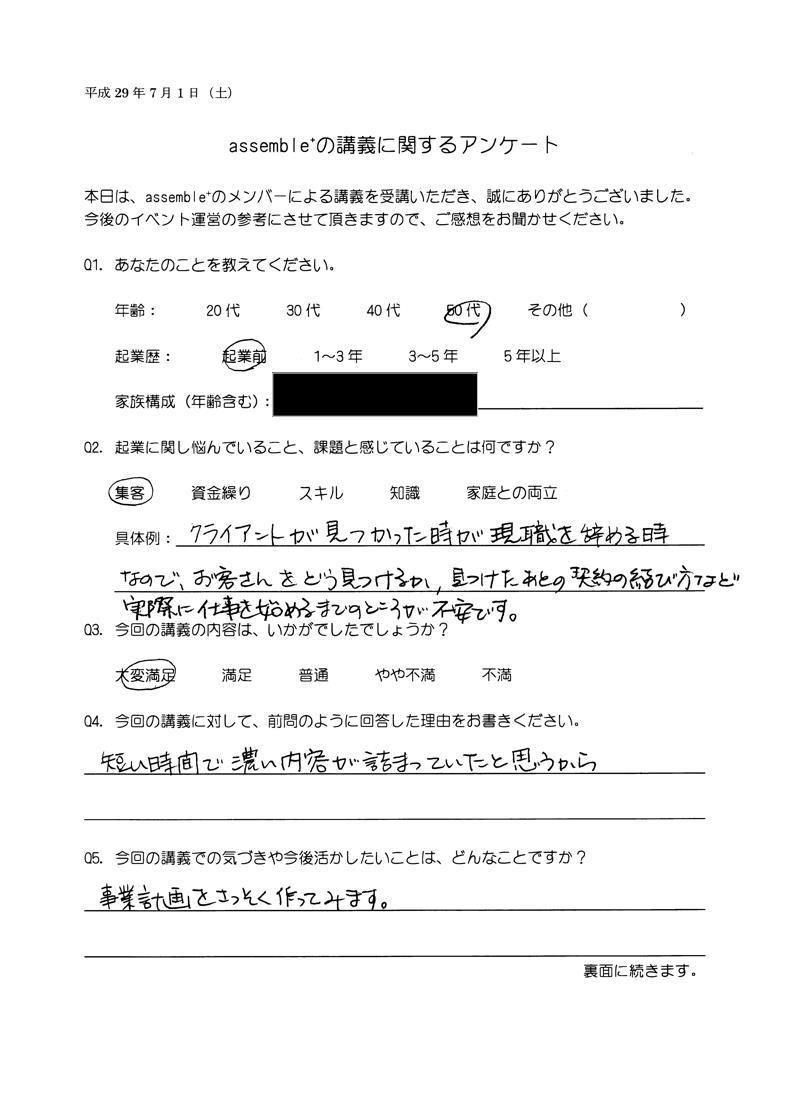 平成 29 年 7 月 1 日（土）
assemble⁺の講義に関するアンケート
本日は、assemble⁺のメンバーによる講義を受講いただき、誠にありがとうございました。
今後のイベント運営の参考にさせて頂きますので、ご感想をお聞かせください。
Q1. あなたのことを教えてください。
年齢： 20 代 30 代 40 代 50 代 その他（ ）
起業歴： 起業前 1～3 年 3～5 年 5 年以上
家族構成（年齢含む）：
Q2. 起業に関し悩んでいること、課題と感じていることは何ですか？
集客 資金繰り スキル 知識 家庭との両立
具体例： クライアントが見つかった時が現職を辞める時
なので、お客さんをどう見つけるか, 見つけたあとの契約の結び方など
実際に仕事を始めるまでのところが不安です。
Q3. 今回の講義の内容は、いかがでしたでしょうか？
大変満足 満足 普通 やや不満 不満
Q4. 今回の講義に対して、前問のように回答した理由をお書きください。
短い時間で濃い内容が詰まっていたと思うから
Q5. 今回の講義での気づきや今後活かしたいことは、どんなことですか？
事業計画をさっそく作ってみます。
裏面に続きます。